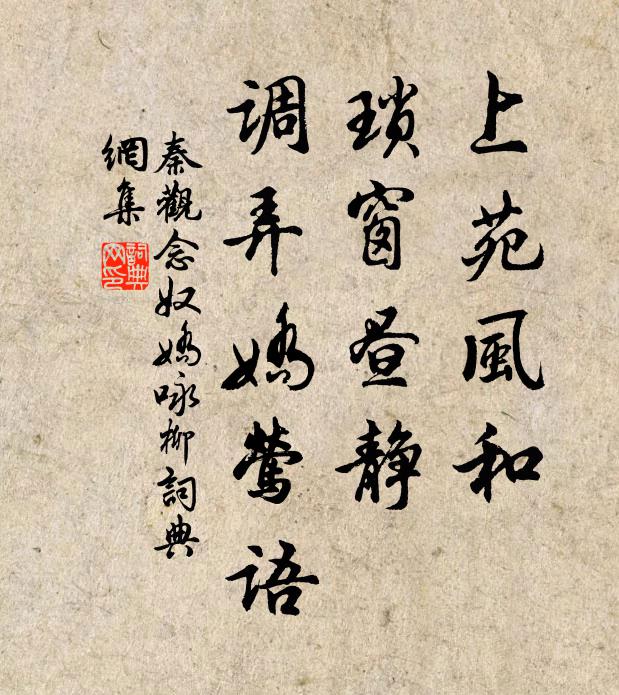 上苑風和
瑣窗昼静
调弄嬌鶯语
秦觀念奴嬌咏柳詞典
網集
詞典
网印